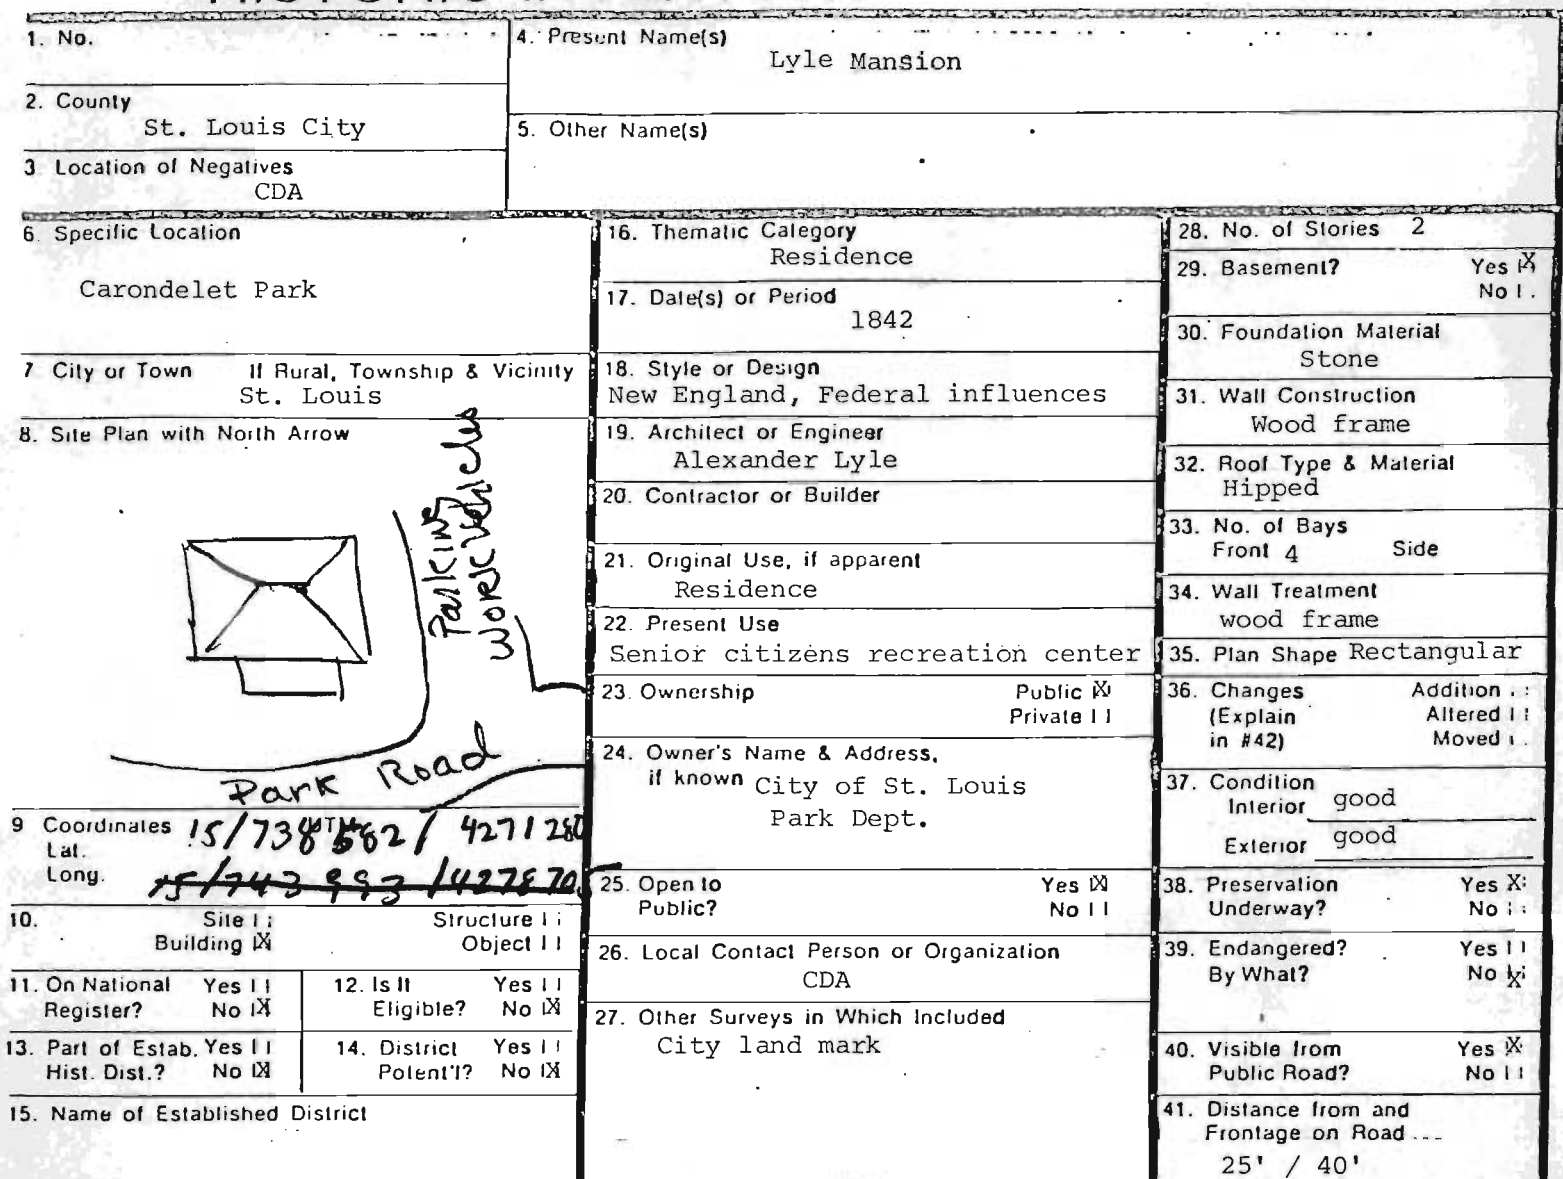 1. No.
4. Present Name(s)
Lyle Mansion
2. County
St. Louis City
5. Other Name(s)
3 Location of Negatives
CDA
6. Specific Location
Carondelet Park
7 City or Town If Rural, Township & Vicinity
St. Louis
8. Site Plan with North Arrow
Parking
Work Vehicles
Park Road
9 Coordinates UTM
Lat.
Long.
4271280
15/743 993 /4278705
10. Site
Building X
Structure
Object
11. On National Register? Yes
No X
12. Is It Eligible? Yes
No X
13. Part of Estab. Hist. Dist.? Yes
No X
14. District Potent'l? Yes
No X
15. Name of Established District
16. Thematic Category
Residence
17. Date(s) or Period
1842
18. Style or Design
New England, Federal influences
19. Architect or Engineer
Alexander Lyle
20. Contractor or Builder
21. Original Use, if apparent
Residence
22. Present Use
Senior citizens recreation center
23. Ownership Public X
Private
24. Owner's Name & Address,
if known City of St. Louis
Park Dept.
25. Open to Yes X
Public? No
26. Local Contact Person or Organization
CDA
27. Other Surveys in Which Included
City land mark
28. No. of Stories 2
29. Basement? Yes X
No
30. Foundation Material
Stone
31. Wall Construction
Wood frame
32. Roof Type & Material
Hipped
33. No. of Bays
Front 4 Side
34. Wall Treatment
wood frame
35. Plan Shape Rectangular
36. Changes Addition
(Explain Altered
in #42) Moved
37. Condition
Interior good
Exterior good
38. Preservation Yes X
Underway? No
39. Endangered? Yes
By What? No X
40. Visible from Yes X
Public Road? No
41. Distance from and
Frontage on Road
25' / 40'